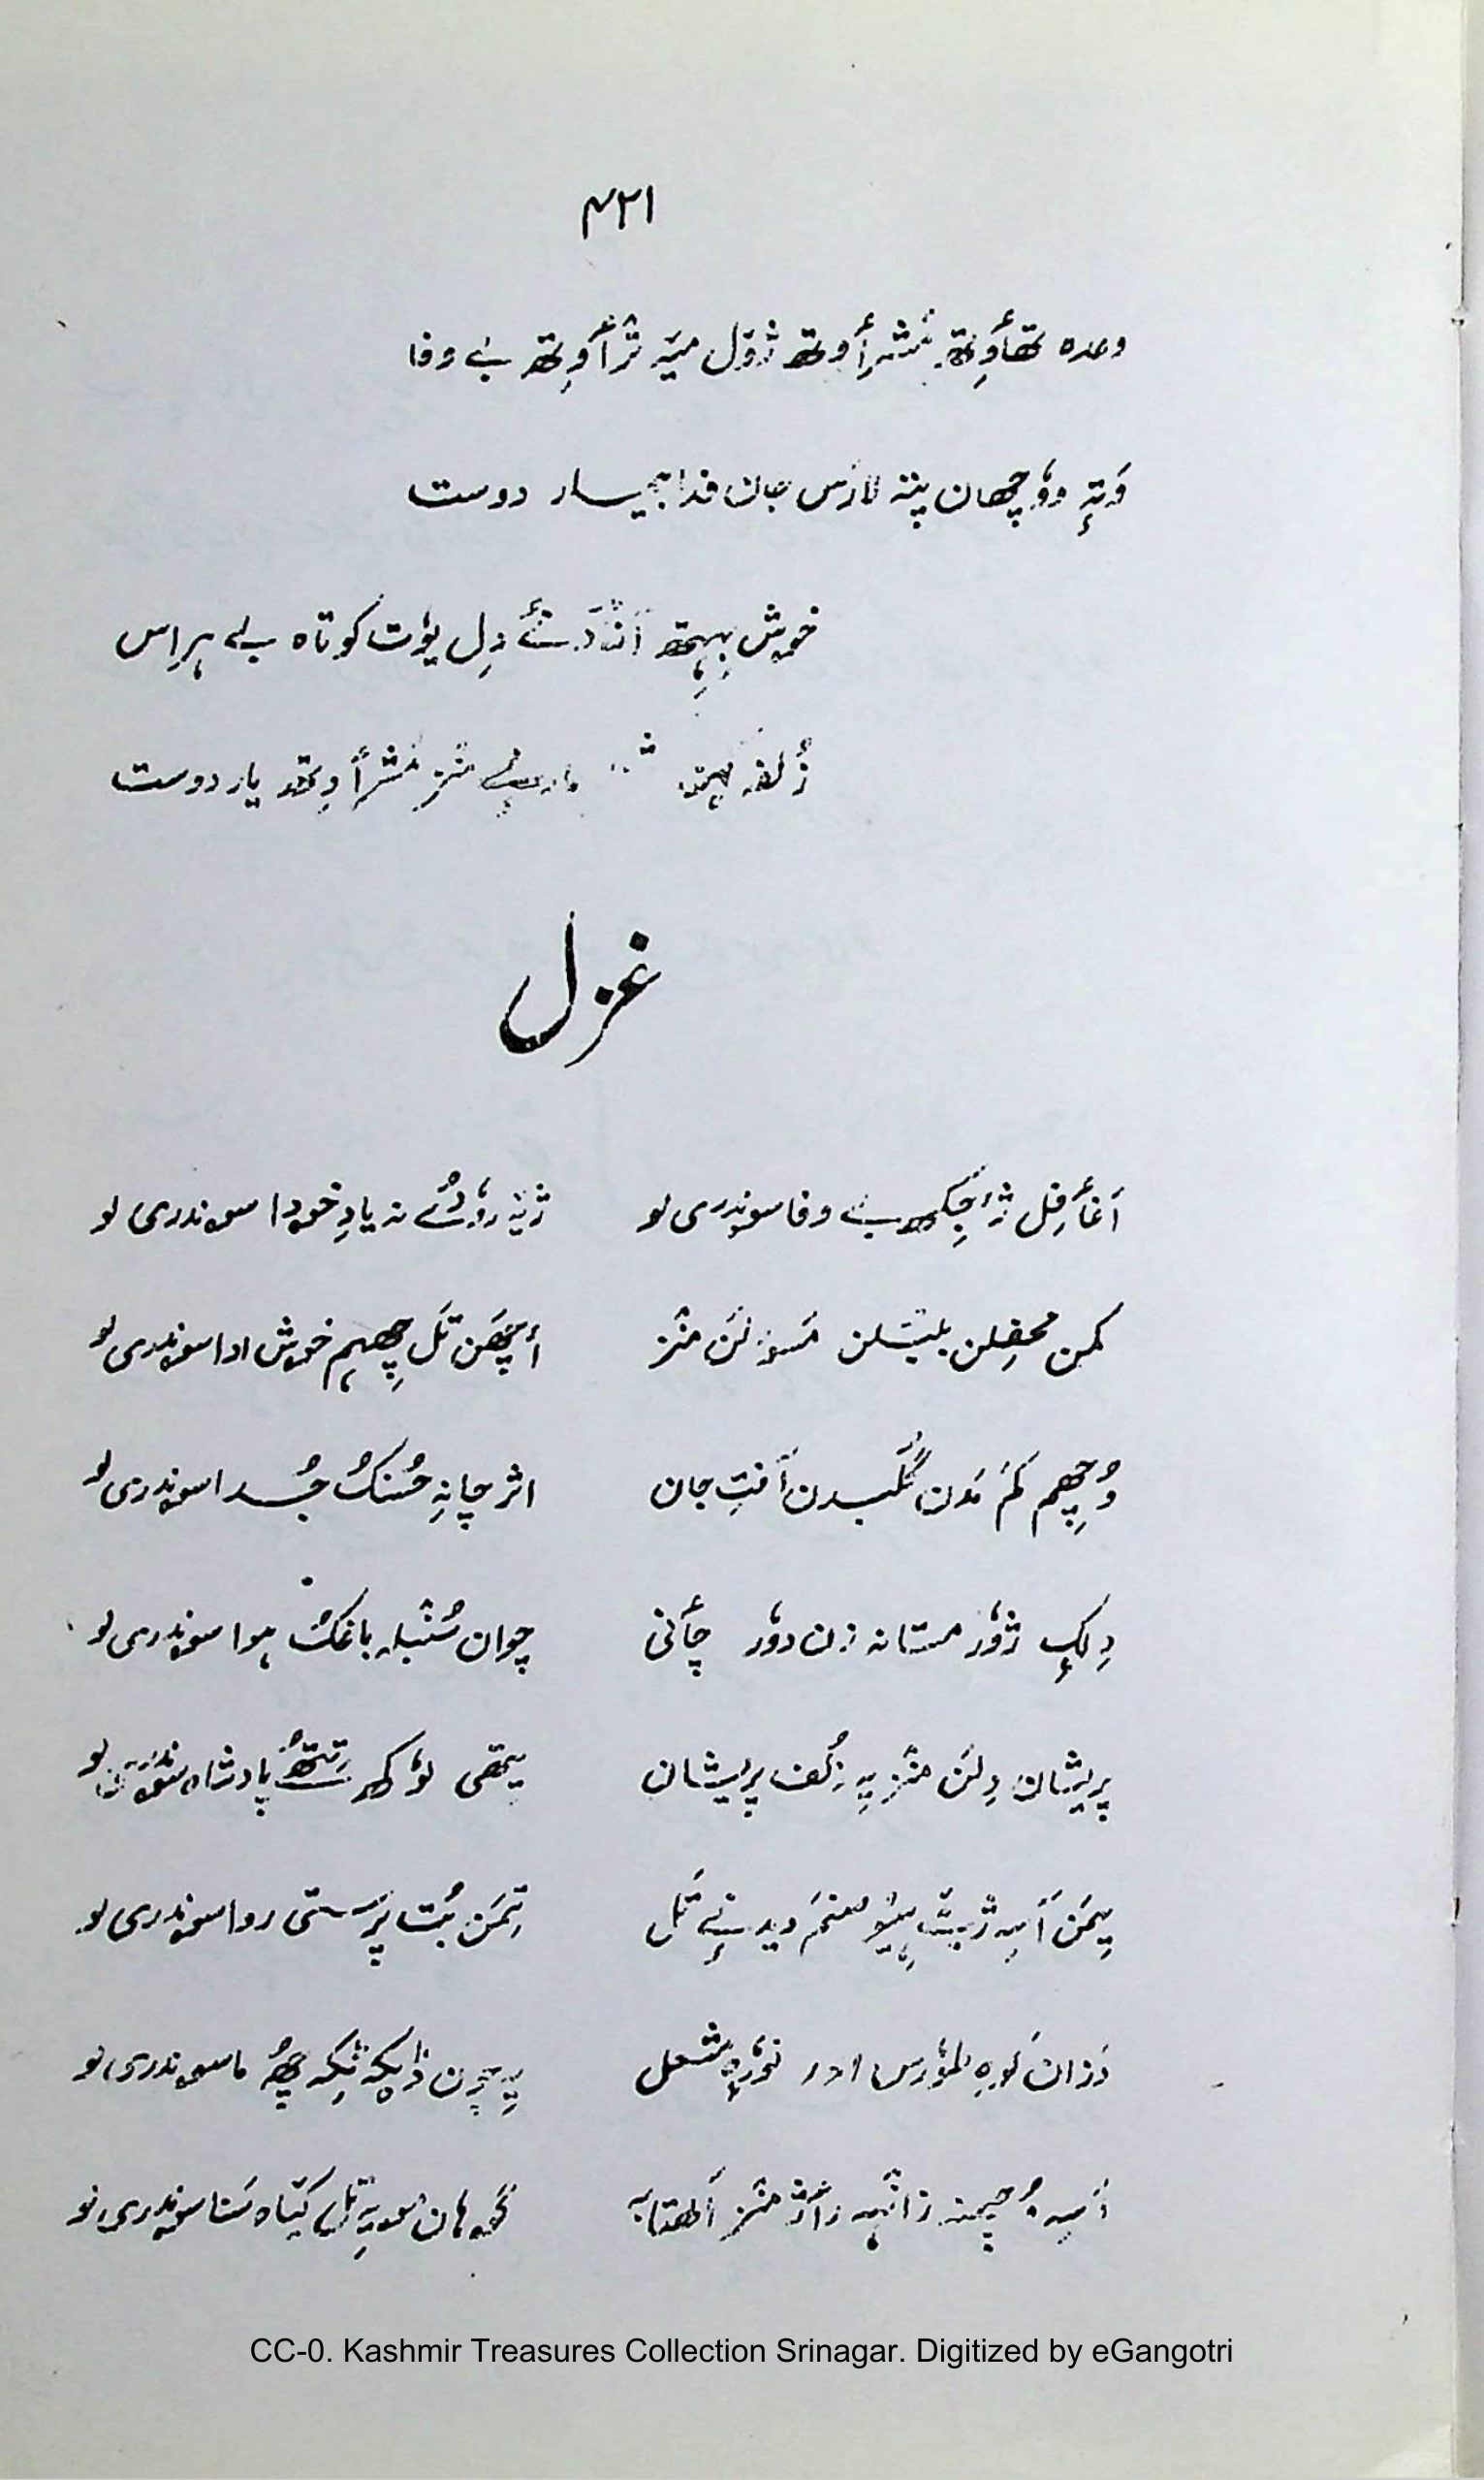 ۴۲۱
وعدہ تھأوِتھ مَشرأوتھ ژوٚل میہِ ترٛأوِتھ بے وفا
وَتہٕ وُچھان پتہ لارس جان فدا بیمار دوست
خوش بِہِتھ اندَر سٔنے دِل یوٗت کوتاہ بے ہراس
زُلف پیتہ منز مَشرأوِتھ یار دوست
غزل
أغأفِل ژٕ چھکھ بے وفا سوندری لو
ژیہِ روٗدُے نہ یادِ خودا سوندری لو
کمن محفلن بلبلن مَسولَن منز
أچھَن تَل چھِہَم خوش ادا سوندری لو
وُچھِم کَم مَدن گُلبدن آفتِ جان
اثر چانہِ حُسنکُ جُدا سوندری لو
دِلکہِ ژوٗر مستانہ زن دوٗر چأنی
چوان سُنبلہ باغکُ ہوا سوندری لو
پریشان دِلَن منز یہِ زُلف پریشان
یتھی لوٗکھ رتتھُے پادشاہ سوندری لو
یِمَن آسہِ ژیتَس پیٚو صنم دید نے تَل
تِمَن بُت پرَستی روا سوندری لو
دَزان کوہِ طوٗرس اندر نوٗرہ مشعل
یہِ چون ڈیکہ ٹِکہ چھُ ما سوندری لو
أسہِ وُچھمنہ زانٛہہ راژ منز آفتابہ
سوندری لو
CC-0. Kashmir Treasures Collection Srinagar. Digitized by eGangotri